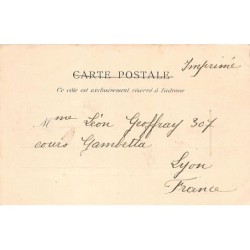 Imprimé
CARTE POSTALE
Ce côté est exclusivement réservé à l'adresse
Mme Léon Geoffray 307
cours Gambetta
Lyon
France